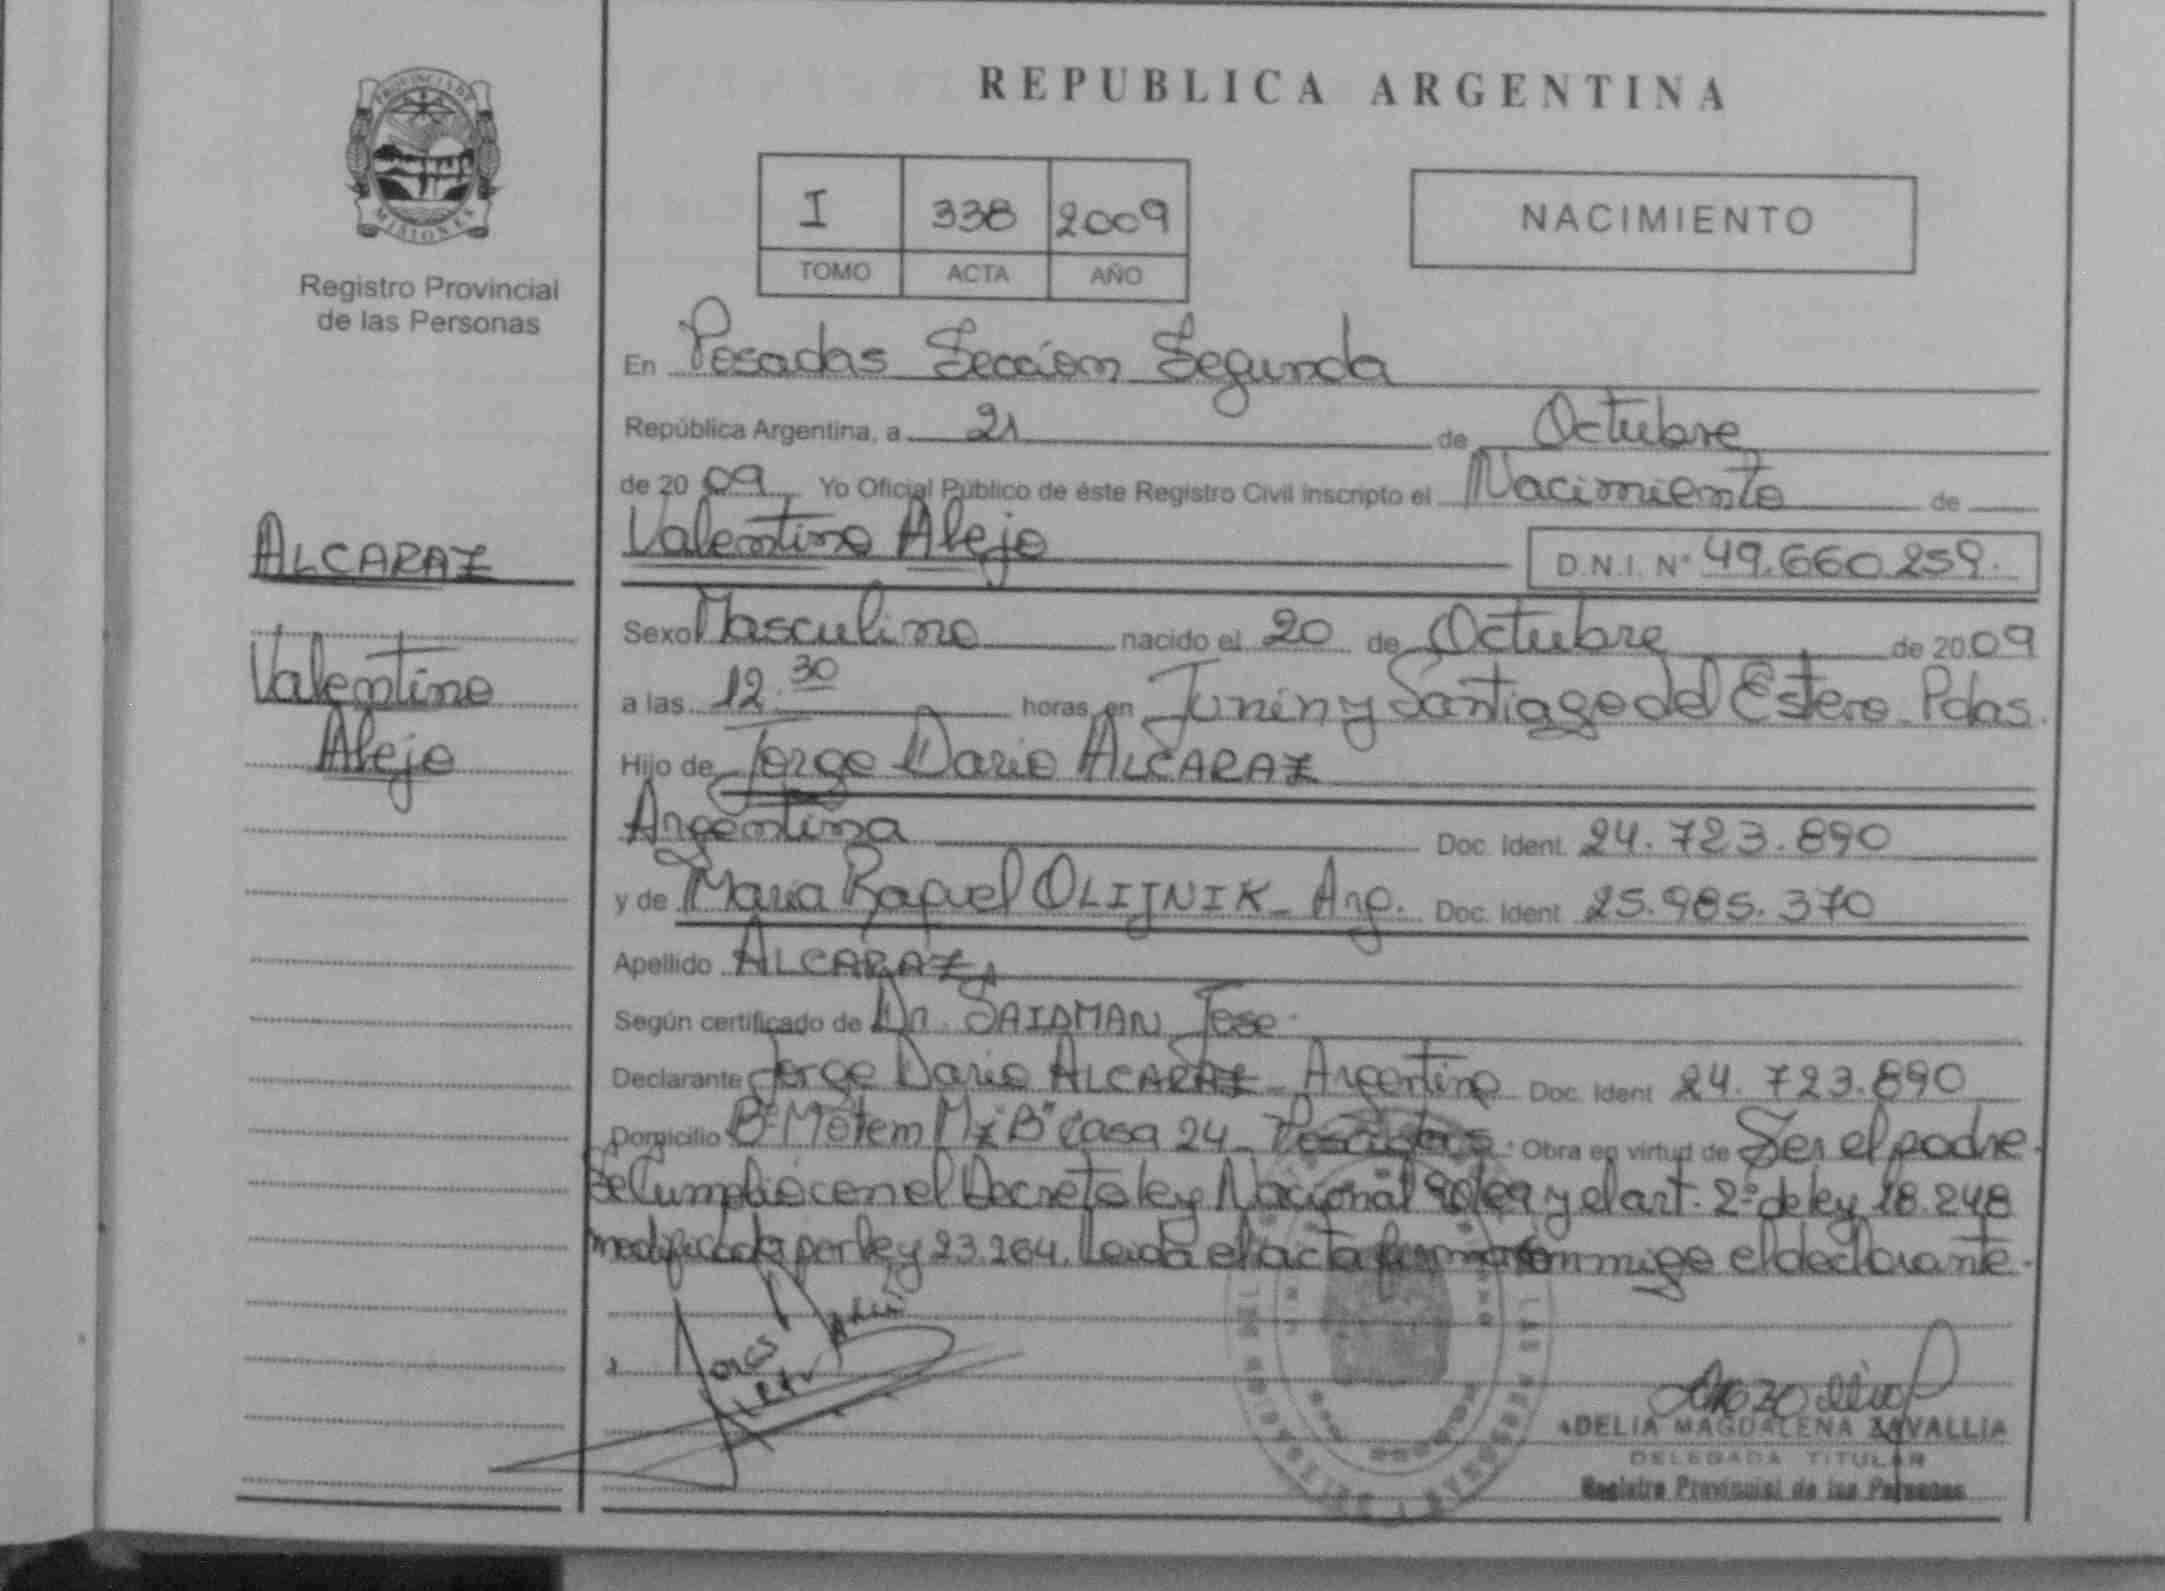 PROVINCIA DE
MISIONES
Registro Provincial
de las Personas
REPUBLICA ARGENTINA
I 338 2009
TOMO ACTA AÑO
NACIMIENTO
En Posadas Sección Segunda
República Argentina, a 21 de Octubre
de 20 09 Yo Oficial Público de éste Registro Civil inscripto el Nacimiento de
ALCARAZ
Valentino
Alejo
Valentino Alejo D.N.I. Nº 49.660.259.
Sexo Masculino nacido el 20 de Octubre de 2009
a las 12.30 horas, en Junin y Santiago del Estero. Pdas.
Hijo de Jorge Dario ALCARAZ
Argentina Doc. Ident. 24.723.890
y de Maria Raquel OLIJNIK - Arg. Doc. Ident 25.985.370
Apellido ALCARAZ
Según certificado de Dr. SAIDMAN Jose
Declarante Jorge Dario ALCARAZ - Argentino Doc. Ident 24.723.890
Domicilio Bº Mz "B" Casa 24 - Posadas. Obra en virtud de Ser el padre.
Se Cumplio con el Decreto ley Nacional y el art. 2º de ley 18.248
modificada por ley 23.264. Leida el acta firma conmigo el declarante.
DELIA MAGDALENA ZAVALLIA
DELEGADA TITULAR
Registro Provincial de las Personas